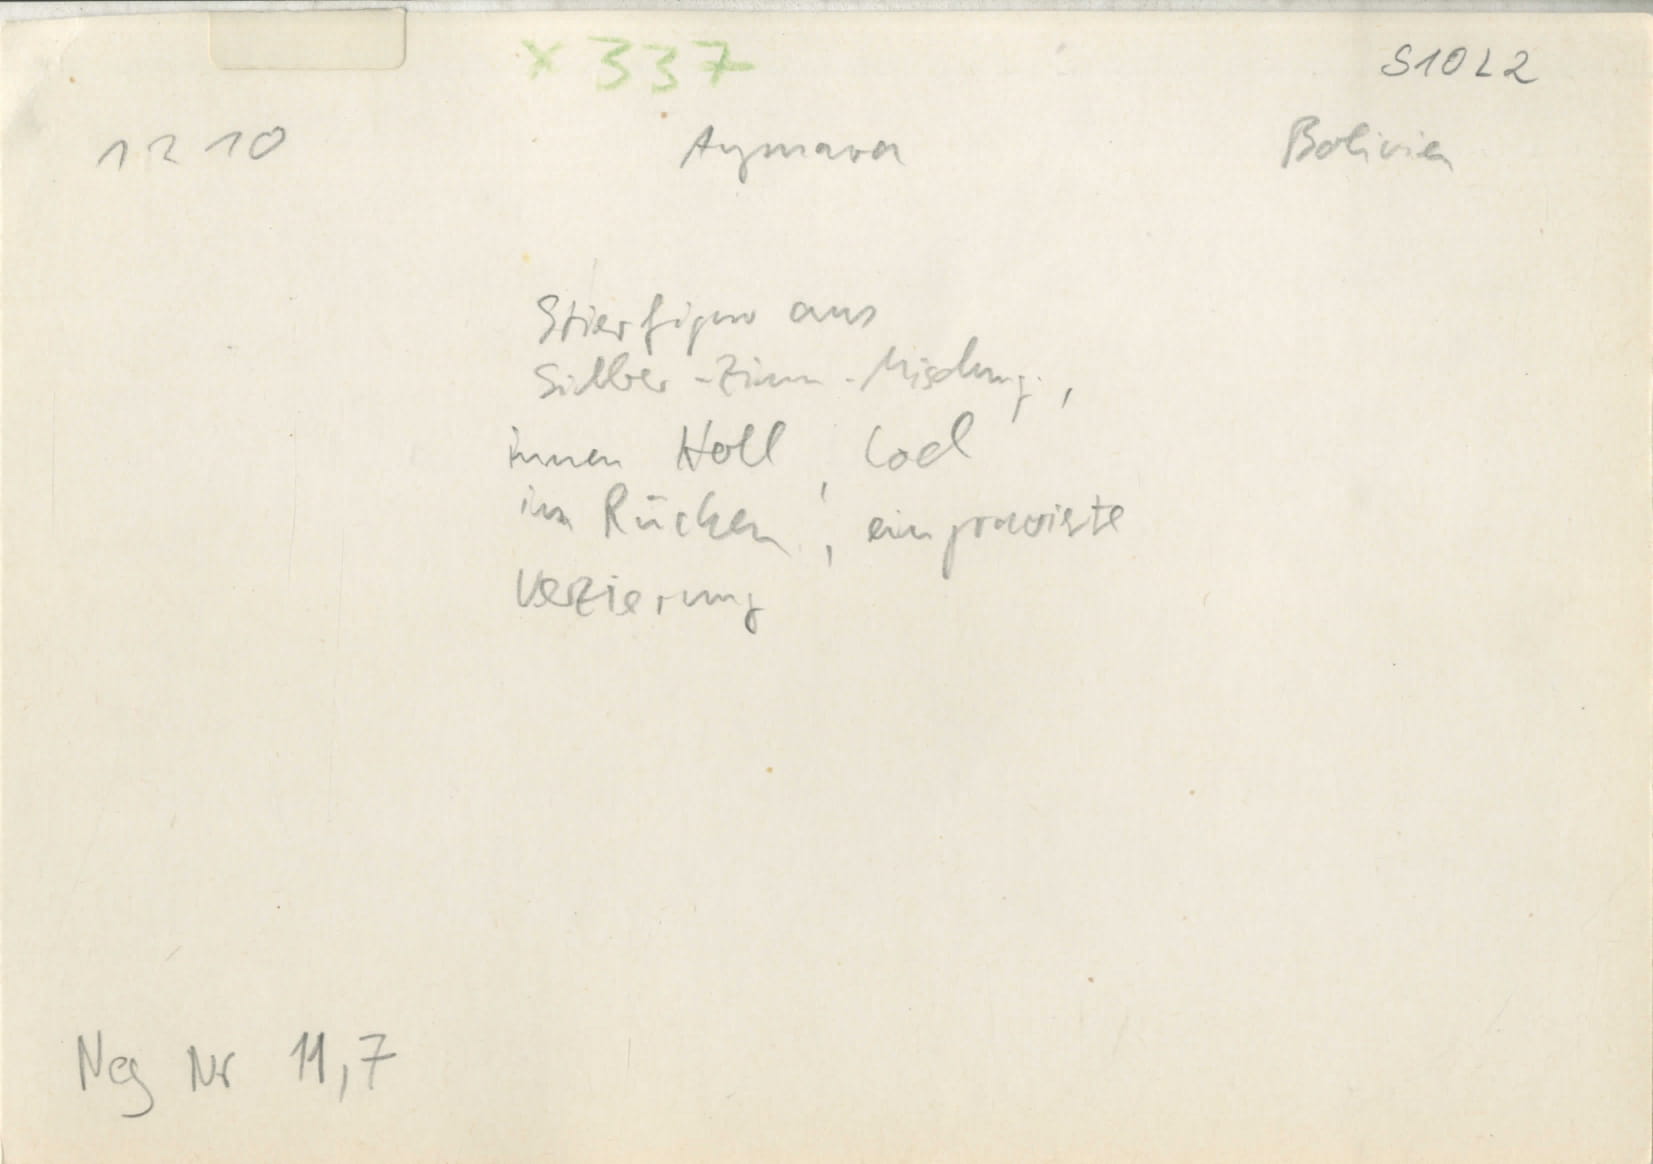 x 337
S10L2
1210 Aymara Bolivien
Stierfigur aus
Silber-Zinn-Mischung,
innen Hohl, Loch
im Rücken, eingravierte
Verzierung
Neg Nr 11,7